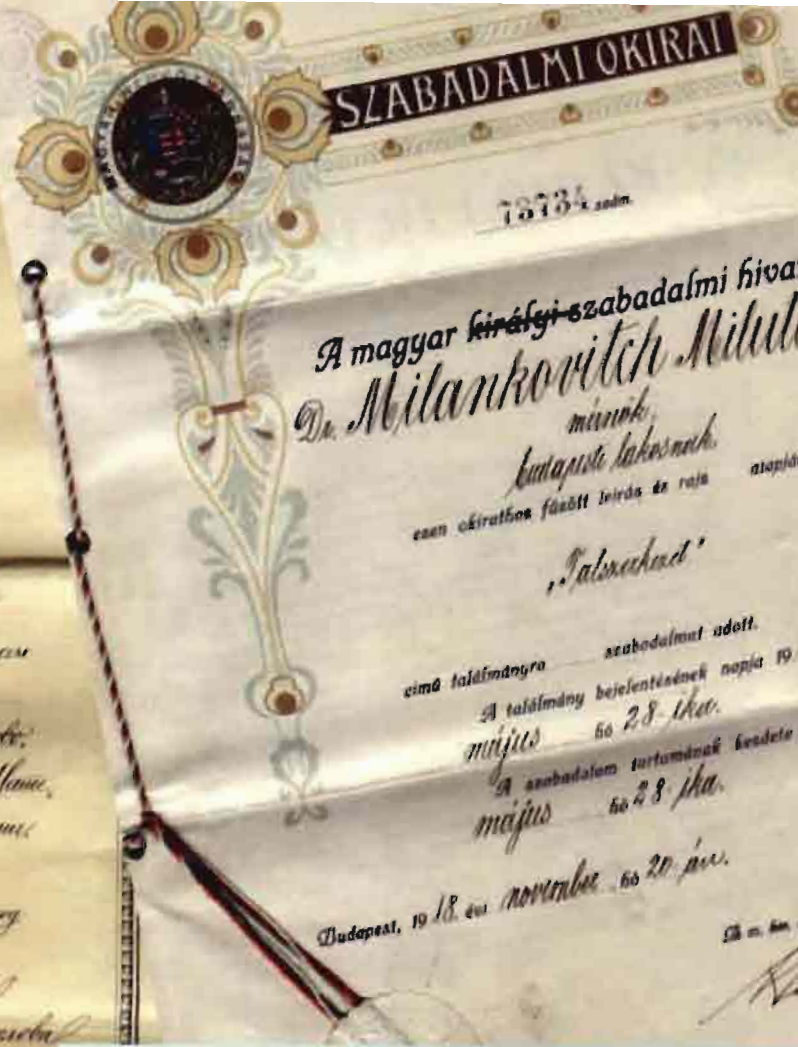 SZABADALMI OKIRAT
73734. szám.
A magyar királyi szabadalmi hiva
Dr. Milankovitch Miluti
mérnök,
budapesti lakosnak,
ezen okirathoz fűzött leirás és rajz alapján
„Falszerkezet"
című találmányra szabadalmat adott.
A találmány bejelentésének napja 19
május hó 28-ika.
A szabadalom tartamának kezdete
május hó 28-ika.
Budapest, 1918. évi november hó 20-án.
A m. kir.